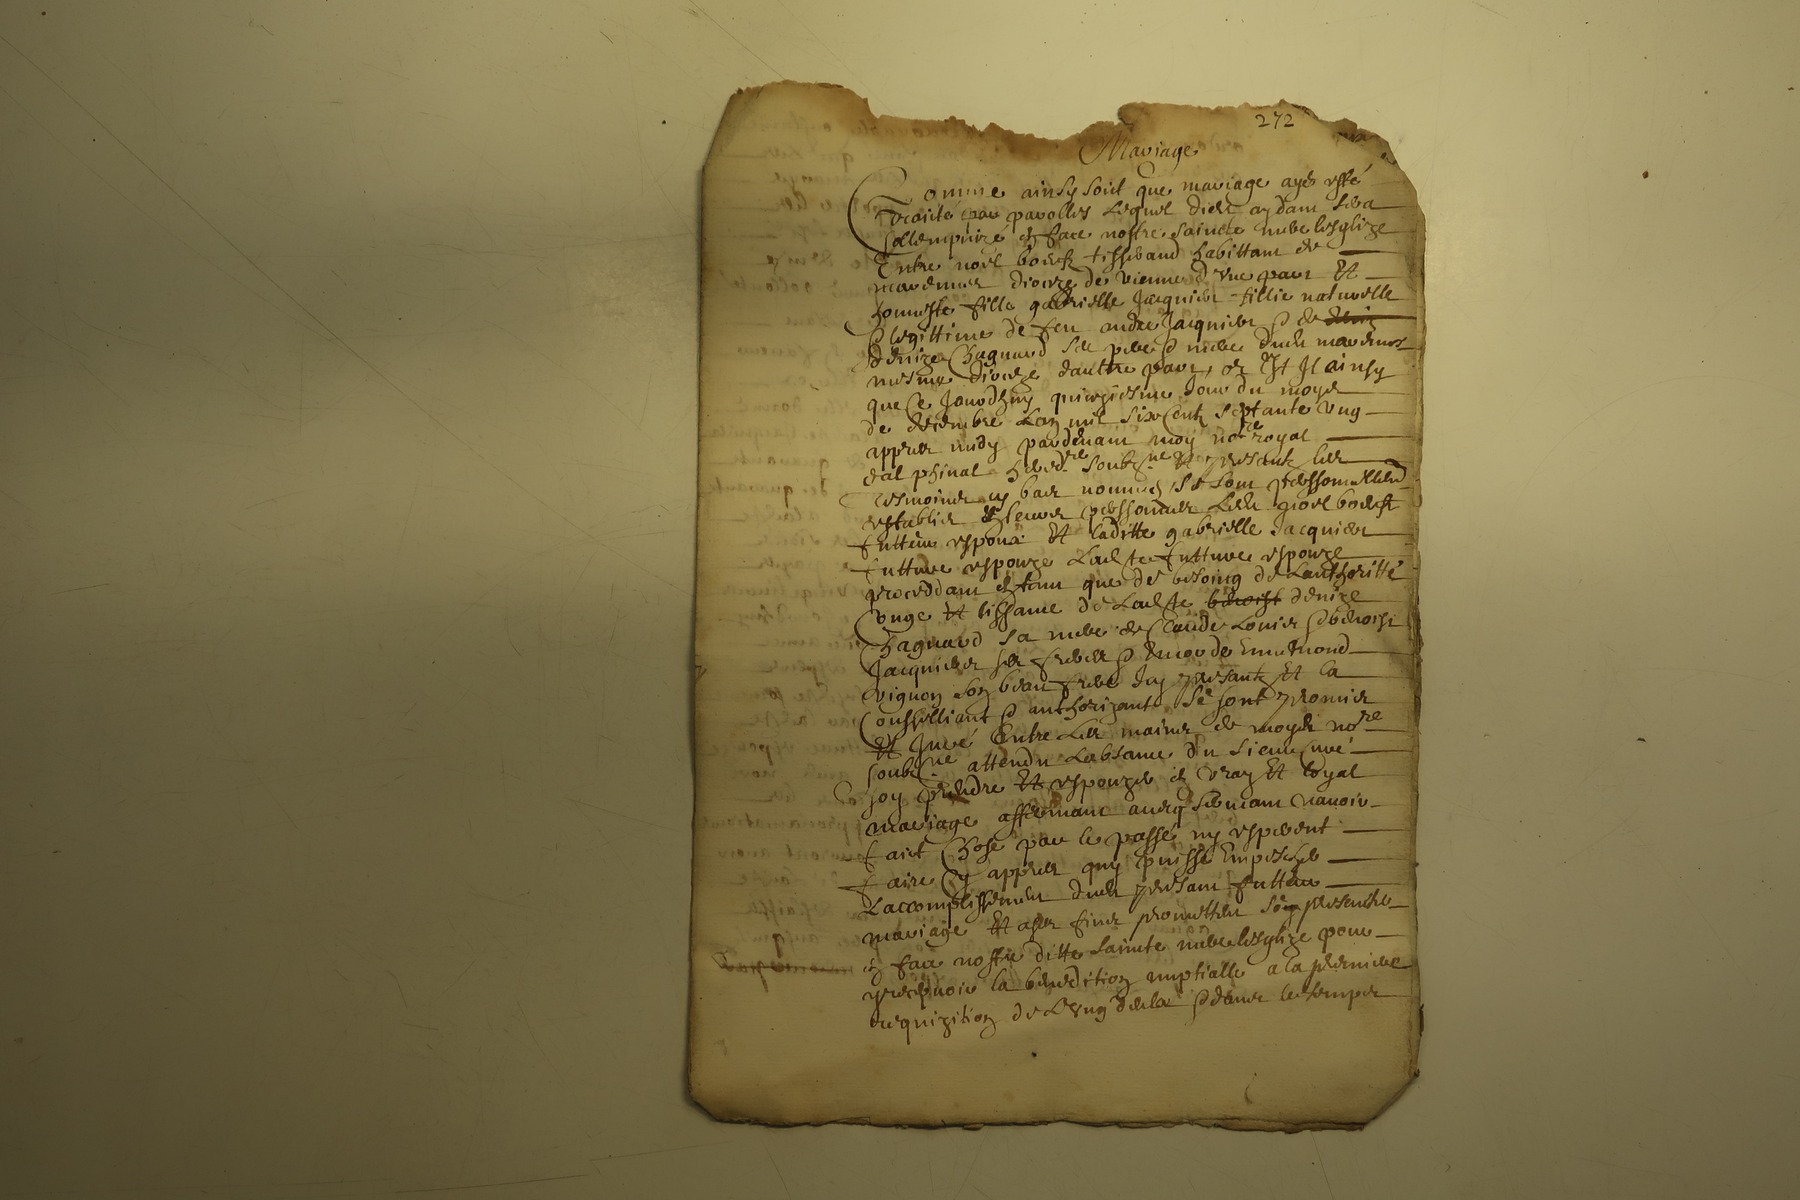 272
Mariage
Comme ainsy soit que mariage aye esté
traité par parolles lequel dieu aydant sera
sollempnizé en face nostre saincte mere lesglize
Entre noel boeuf tisserand habittant de
dioceze de vienne d'une part Et
honneste fille gabrielle Jacquier fillie naturelle
& legittime de feu andre Jacquier & de
denize Chagnard ses pere & mere dudit
mesme dioceze dautre part, or Est Il ainsy
que Ce Jourdhuy quinziesme Jour du moys
de decembre Lan mil six Centz septante ung
appres midy pardevant moy nore royal
dalphinal hered.re soubzne Et presentz les
tesmoings en bas nommes, se sont
establies en leurs personnes Ledit noel boeuf
futteur espoux Et laditte gabrielle Jacquier
futture espouze Ladite futture espouze
proceddant en tant que de besoing de Lauthoritté
Conge Et lissance de Ladite benoist denize
Chagnard sa mere de Claude Louis & benoist
Jacquier ses freres & de
vignon son beau frere Icy presantz Et la
Conseilliant & authorizant se sont promis
Et Juré Entre Les mains de moydit nore
soubzne attendu Labsance du sieur Curé
soy prendre Et espouzer en vray Et loyal
mariage affirmant navoir
faict Chose par le passé ny esperent
faire Cy appres quy puisse Empescher
Laccomplissement dudit presant futteur
mariage Et a ses fins promettent se presenter
en face nostre ditte saincte mere lesglize pour
recepvoir la benedition nuptialle a la premiere
requizition de L'ung deulx & dans le temps